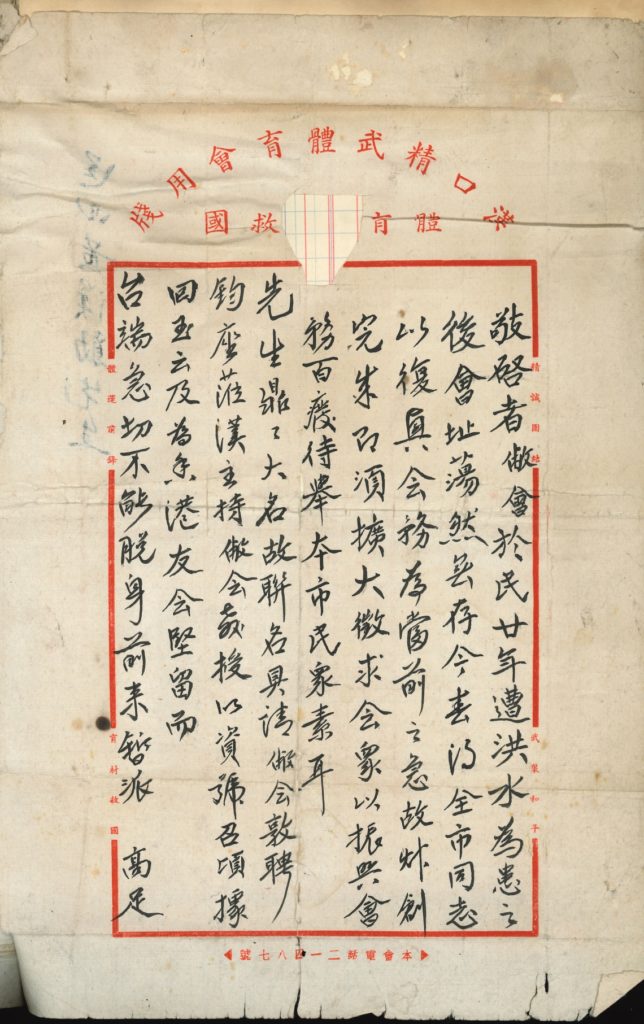 漢口精武體育會用牋
體育救國
敬啓者敝會於民廿年遭洪水為患之
後會址蕩然無存今春得全市同志
以復興会務為當前之急故
完朱即須擴大徵求会眾以振興會
務百廢待舉本市民眾素耳
先生鼎鼎大名故聯名具請敝会敦聘
鈞座蒞漢主持敝会教授以資號召頃據
回玉云及為香港友会堅留而
台端急切不能脱身前来暫派 高足
精誠團結
體運
育救國
本會電話二一四八七號